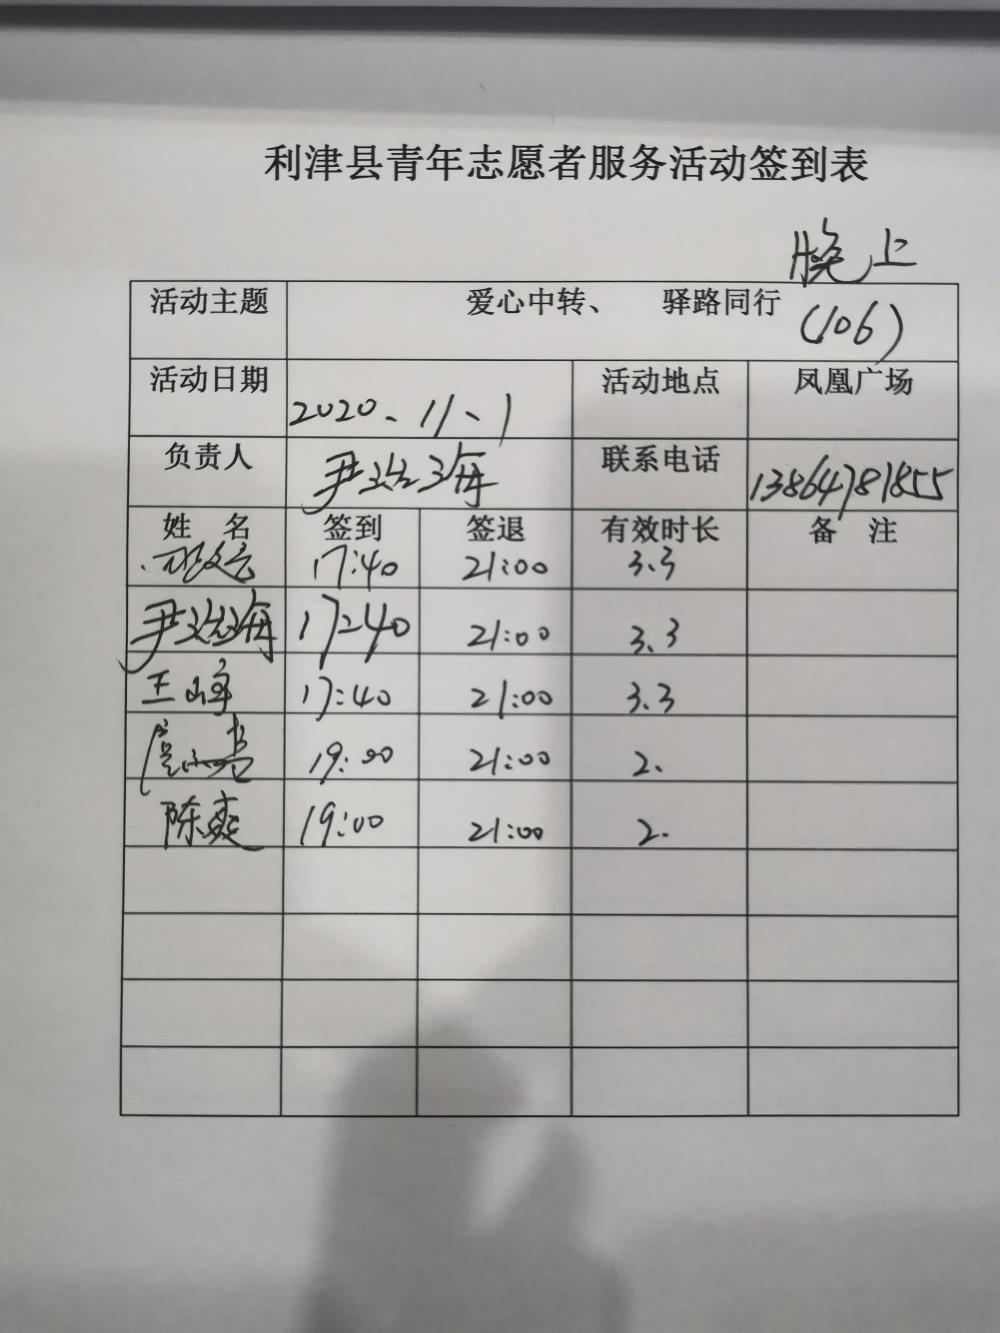 利津县青年志愿者服务活动签到表
晚上
活动主题 爱心中转、 驿路同行 (106)
活动日期 2020、11、1 活动地点 凤凰广场
负责人 尹治海 联系电话 13864781855
姓 名 签到 签退 有效时长 备 注
17:40 21:00 3.3
尹治海 17:40 21:00 3.3
王峰 17:40 21:00 3.3
19:00 21:00 2.
陈爽 19:00 21:00 2.